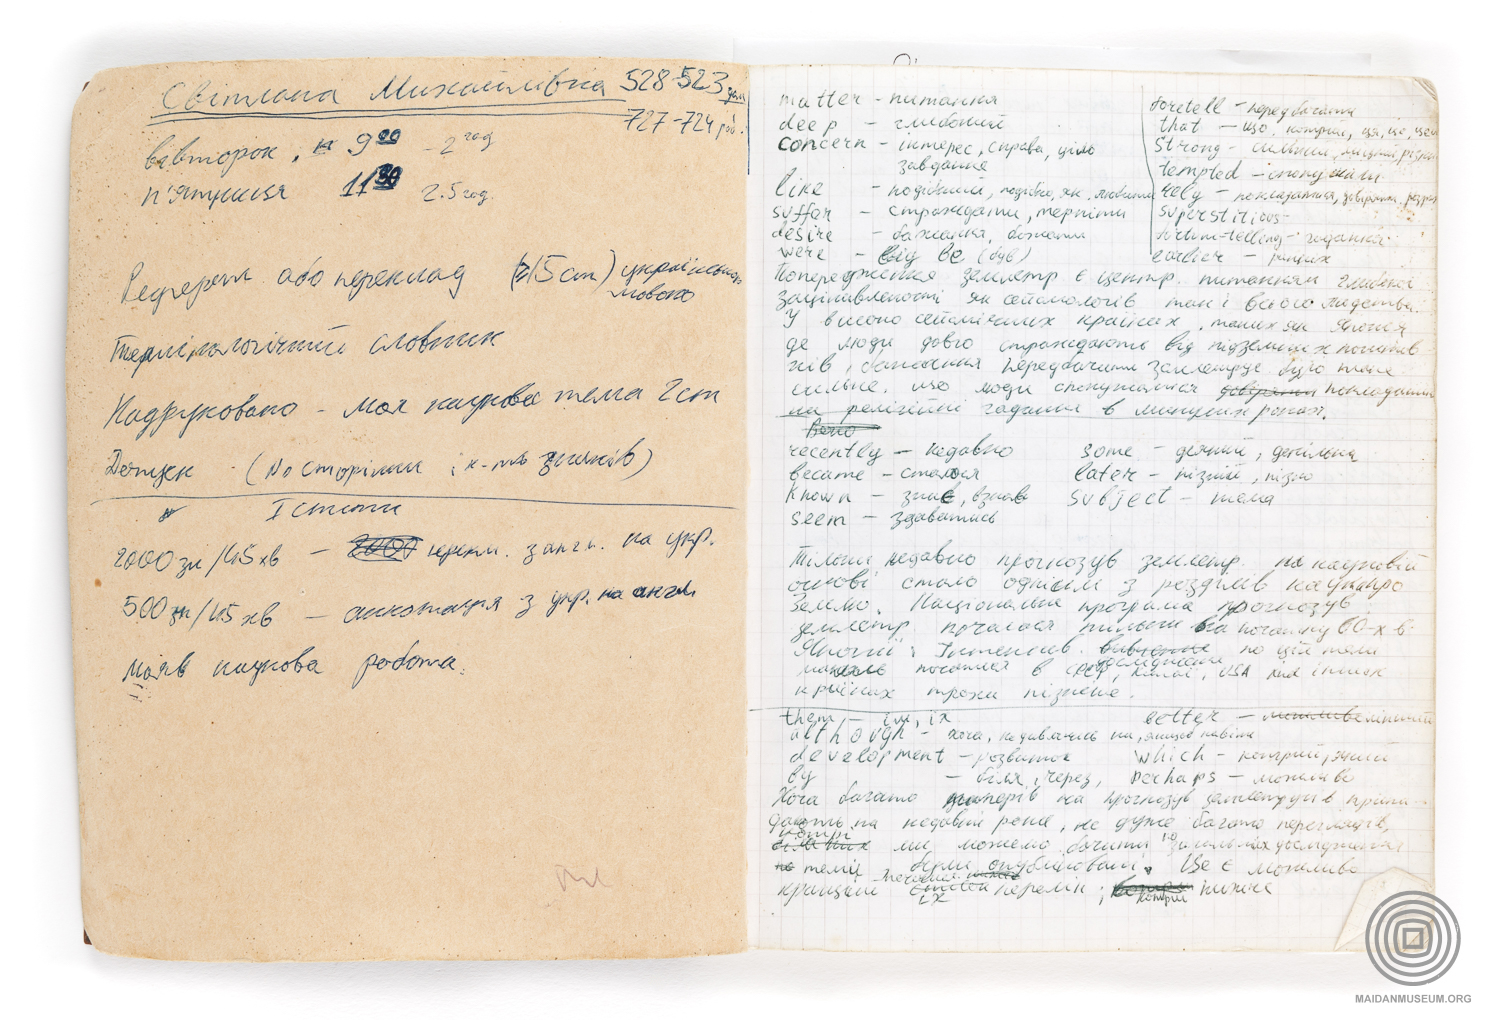 Світлана Михайлівна 528-523 дом
727-724 роб.
вівторок, 9 00 - 2 год
п'ятниця 11 30 2.5 год.
Реферат або переклад (15 ст) українською
мовою
Термінологічний словник
Надруковано - моя наукова тема 2 ст
Допуск (No сторінки і к-ть знаків)
I статті
2000 зн/45 хв - перекл. з англ. на укр.
500 зн/45 хв - анотація з укр. на англ.
моя наукова робота.
matter - питання
deep - глибокий
concern - інтерес, справа, ціль
завдання
like - подібний, подібно, як, любити
suffer - страждати, терпіти
desire - бажання, бажати
were - від be (був)
foretell - передбачати
that - що, котрий, ця, це, цей
strong - сильний, міцний, різкий
tempted - спокушати
rely - покладатися, довіряти
superstitious-
fortune-telling - гадання
earlier - раніших
Попередження землетр є центр. питанням глибокої
зацікавленості як сейсмологів так і всього людства.
У високо сейсмічних країнах, таких як Японія
де люди довго страждають від підземних поштов
хів, бажання передбачити землетрус було таке
сильне, що люди спокушалися довіряти покладатися
на релігійні гадання в минулих роках.
Воно
recently - недавно
became - стался
known - знав, взнав
seem - здаватись
some - деякий, декілька
later - пізній, пізно
subject - тема
Тільки недавно прогнозув землетр. на науковій
основі стало одним з розділів науки про
Землю. Національна програма прогнозув
землетр. почалася тільки на початку 60-х в
Японії. Інтенсив. вивчення по цій темі
дослідження
почалися в СРСР, Китаї, USA та інших
країнах трохи пізніше.
them - їм, їх
although - хоча, не дивлячись на, якщо навіть
development - розвиток
by - біля, через,
better - можливо ліпший
which - котрий, який
perhaps - можливо
Хоча багато паперів на прогнозув землетрусів припа-
дають на недавні роки, не дуже багато переглядів,
котрі
ми можемо бачити загальних дослідження
темі були опубліковані. Це є можливо
кращий їх перелік; котрий нижче
MAIDANMUSEUM.ORG